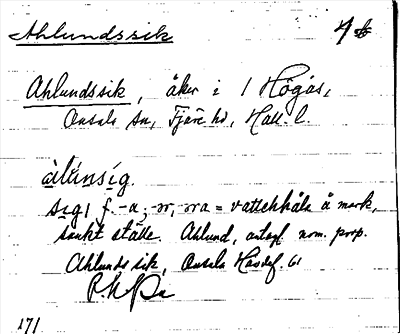 Ahlundssik
Ahlundssik, åker i 1 Högås,
Onsala sn, Fjäre hd, Hall. l.
àlúnsíg.
sig, f. -a; -ər, -ərna = vattenhåla å mark,
sankt ställe. Ahlund, antagl. nom. prop.
Ahlunds sik, Onsala Häsdef. 61
171